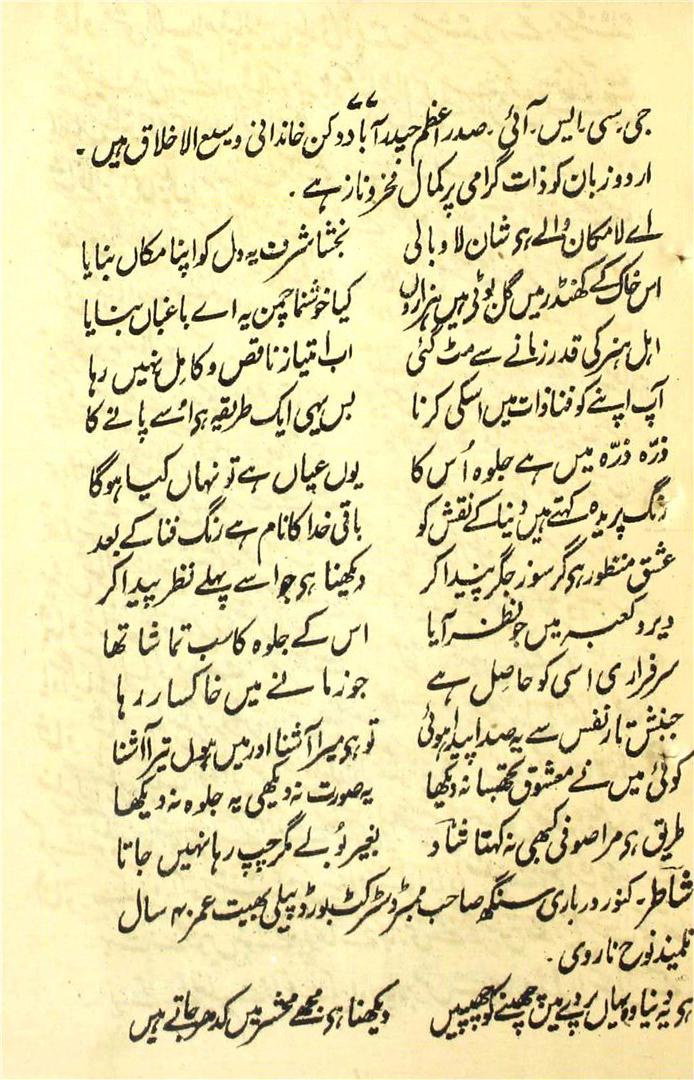 ۷۷
جی۔سی۔ایس۔آئی۔صدر اعظم حیدرآباد دکن خاندانی وسیع الاخلاق ہیں۔
اردو زبان کو ذات گرامی پر کمال فخر و ناز ہے۔
اے لامکان والے ہی شان لاوبالی بخشا شرف یہ دل کو اپنا مکاں بنایا
اس خاک کے کھنڈر میں گل بوٹی ہیں ہزاروں کیا خوشنما چمن یہ اے باغباں بنایا
اہل ہنر کی قدر زمانے سے مٹ گئی اب امتیاز ناقص و کامل نہیں رہا
آپ اپنے کو فنا ذات میں اسکی کرنا بس یہی ایک طریقہ ہی اُسے پانے کا
ذرّہ ذرّہ میں ہے جلوہ اُس کا یوں عیاں ہے تو نہاں کیا ہوگا
رنگ پریدہ کہتے ہیں دنیا کے نقش کو باقی خدا کا نام ہے رنگ فنا کے بعد
عشق منظور ہی گر سوز جگر پیدا کر دیکھنا ہی جو اسے پہلے نظر پیدا کر
دیر و کعبہ میں جو نظر آیا اس کے جلوہ کا سب تماشا تھا
سرفرازی اسی کو حاصل ہے جو زمانے میں خاکسار رہا
جنبش تار نفس سے یہ صدا پیدا ہوئی تو ہی میرا آشنا اور میں ہوں تیرا آشنا
کوئی میں نے معشوق تجھسا نہ دیکھا یہ صورت نہ دیکھی یہ جلوہ نہ دیکھا
طریق ہی مرا صوفی کبھی نہ کہتا شاد بغیر بولے مگر چپ رہا نہیں جاتا
شاطر۔ کنور درباری سنگھ صاحب ممبر ڈسٹرکٹ بورڈ پیلی بھیت عمر ۴۰ سال
تلمیذ نوح ناروی۔
ہی یہ دنیا وہ یہاں پردے میں چھپنے کو چھپیں دیکھنا ہی مجھے محشر میں کدھر جاتے ہیں